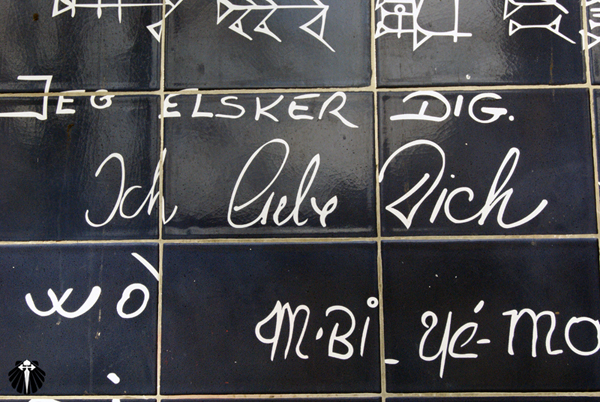 JEG ELSKER DIG.
Ich liebe Dich
wò
M·Bi - yé - mo